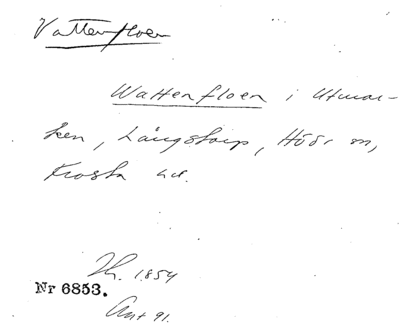 Vattenfloen
Wattenfloen i Utmar-
ken, Långstorp, Höör sn,
Frosta hd.
Th. 1854
Nr 6853.
Ant 91.